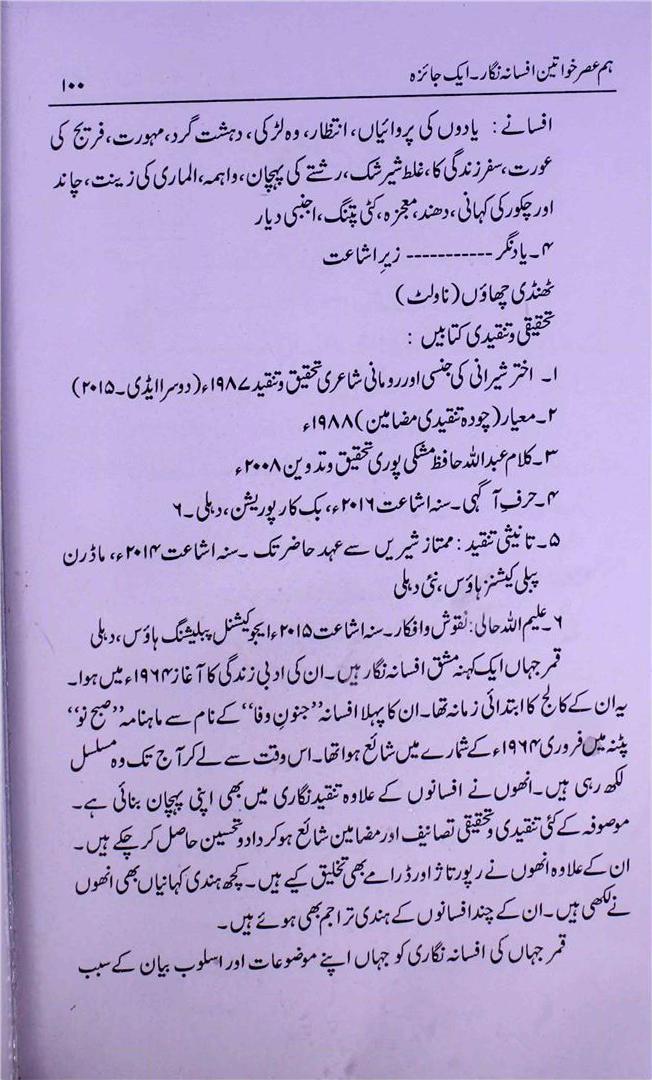 ہم عصر خواتین افسانہ نگار۔ ایک جائزہ
۱۰۰
افسانے : یادوں کی پروائیاں، انتظار، وہ لڑکی، دہشت گرد، مہورت، فریج کی
عورت، سفر زندگی کا، غلط شیر شک، رشتے کی پہچان، واہمہ، الماری کی زینت، چاند
اور چکور کی کہانی، دھند، معجزہ، کٹی پتنگ، اجنبی دیار
۴۔ یاد نگر ----------- زیرِ اشاعت
ٹھنڈی چھاؤں (ناولٹ)
تحقیقی و تنقیدی کتابیں :
۱۔ اختر شیرانی کی جنسی اور رومانی شاعری تحقیق و تنقید ۱۹۸۷ء (دوسرا ایڈی۔ ۲۰۱۵)
۲۔ معیار (چودہ تنقیدی مضامین) ۱۹۸۸ء
۳۔ کلام عبداللہ حافظ مشکی پوری تحقیق و تدوین ۲۰۰۸ء
۴۔ حرفِ آگہی۔ سنہ اشاعت ۲۰۱۶ء، بک کارپوریشن، دہلی۔۶
۵۔ تانیثی تنقید : ممتاز شیریں سے عہد حاضر تک ۔ سنہ اشاعت ۲۰۱۴ء، ماڈرن
پبلی کیشنز ہاؤس، نئی دہلی
۶۔ علیم اللہ حالی : نقوش و افکار۔ سنہ اشاعت ۲۰۱۵ء ایجوکیشنل پبلیشنگ ہاؤس، دہلی
قمر جہاں ایک کہنہ مشق افسانہ نگار ہیں۔ ان کی ادبی زندگی کا آغاز ۱۹۶۴ء میں ہوا۔
یہ ان کے کالج کا ابتدائی زمانہ تھا۔ ان کا پہلا افسانہ ”جنونِ وفا“ کے نام سے ماہنامہ ”صبح نو“
پٹنہ میں فروری ۱۹۶۴ء کے شمارے میں شائع ہوا تھا۔ اس وقت سے لے کر آج تک وہ مسلسل
لکھ رہی ہیں۔ انھوں نے افسانوں کے علاوہ تنقید نگاری میں بھی اپنی پہچان بنائی ہے۔
موصوفہ کے کئی تنقیدی و تحقیقی تصانیف اور مضامین شائع ہو کر داد و تحسین حاصل کر چکے ہیں۔
ان کے علاوہ انھوں نے رپورتاژ اور ڈرامے بھی تخلیق کیے ہیں۔ کچھ ہندی کہانیاں بھی انھوں
نے لکھی ہیں۔ ان کے چند افسانوں کے ہندی تراجم بھی ہوئے ہیں۔
قمر جہاں کی افسانہ نگاری کو جہاں اپنے موضوعات اور اسلوب بیان کے سبب